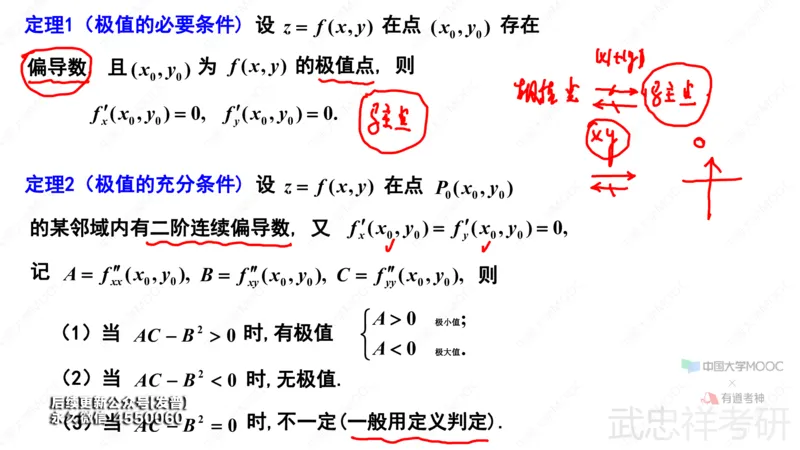 定理1（极值的必要条件）设 z = f(x,y) 在点 (x₀,y₀) 存在
偏导数 且(x₀,y₀) 为 f(x,y) 的极值点, 则
f′ₓ(x₀,y₀) = 0, f′ᵧ(x₀,y₀) = 0.
驻点
|x|+|y|
极值点
驻点
xy
0
定理2（极值的充分条件）设 z = f(x,y) 在点 P₀(x₀,y₀)
的某邻域内有二阶连续偏导数, 又 f′ₓ(x₀,y₀) = f′ᵧ(x₀,y₀) = 0,
记 A = f″ₓₓ(x₀,y₀), B = f″ₓᵧ(x₀,y₀), C = f″ᵧᵧ(x₀,y₀), 则
（1）当 AC − B² > 0 时,有极值 { A > 0 极小值;
A < 0 极大值.
（2）当 AC − B² < 0 时,无极值.
（3）当 AC − B² = 0 时,不一定(一般用定义判定).
后续更新公众号[发普]
永久微信:4550060
中国大学MOOC
×
有道考神
武忠祥考研